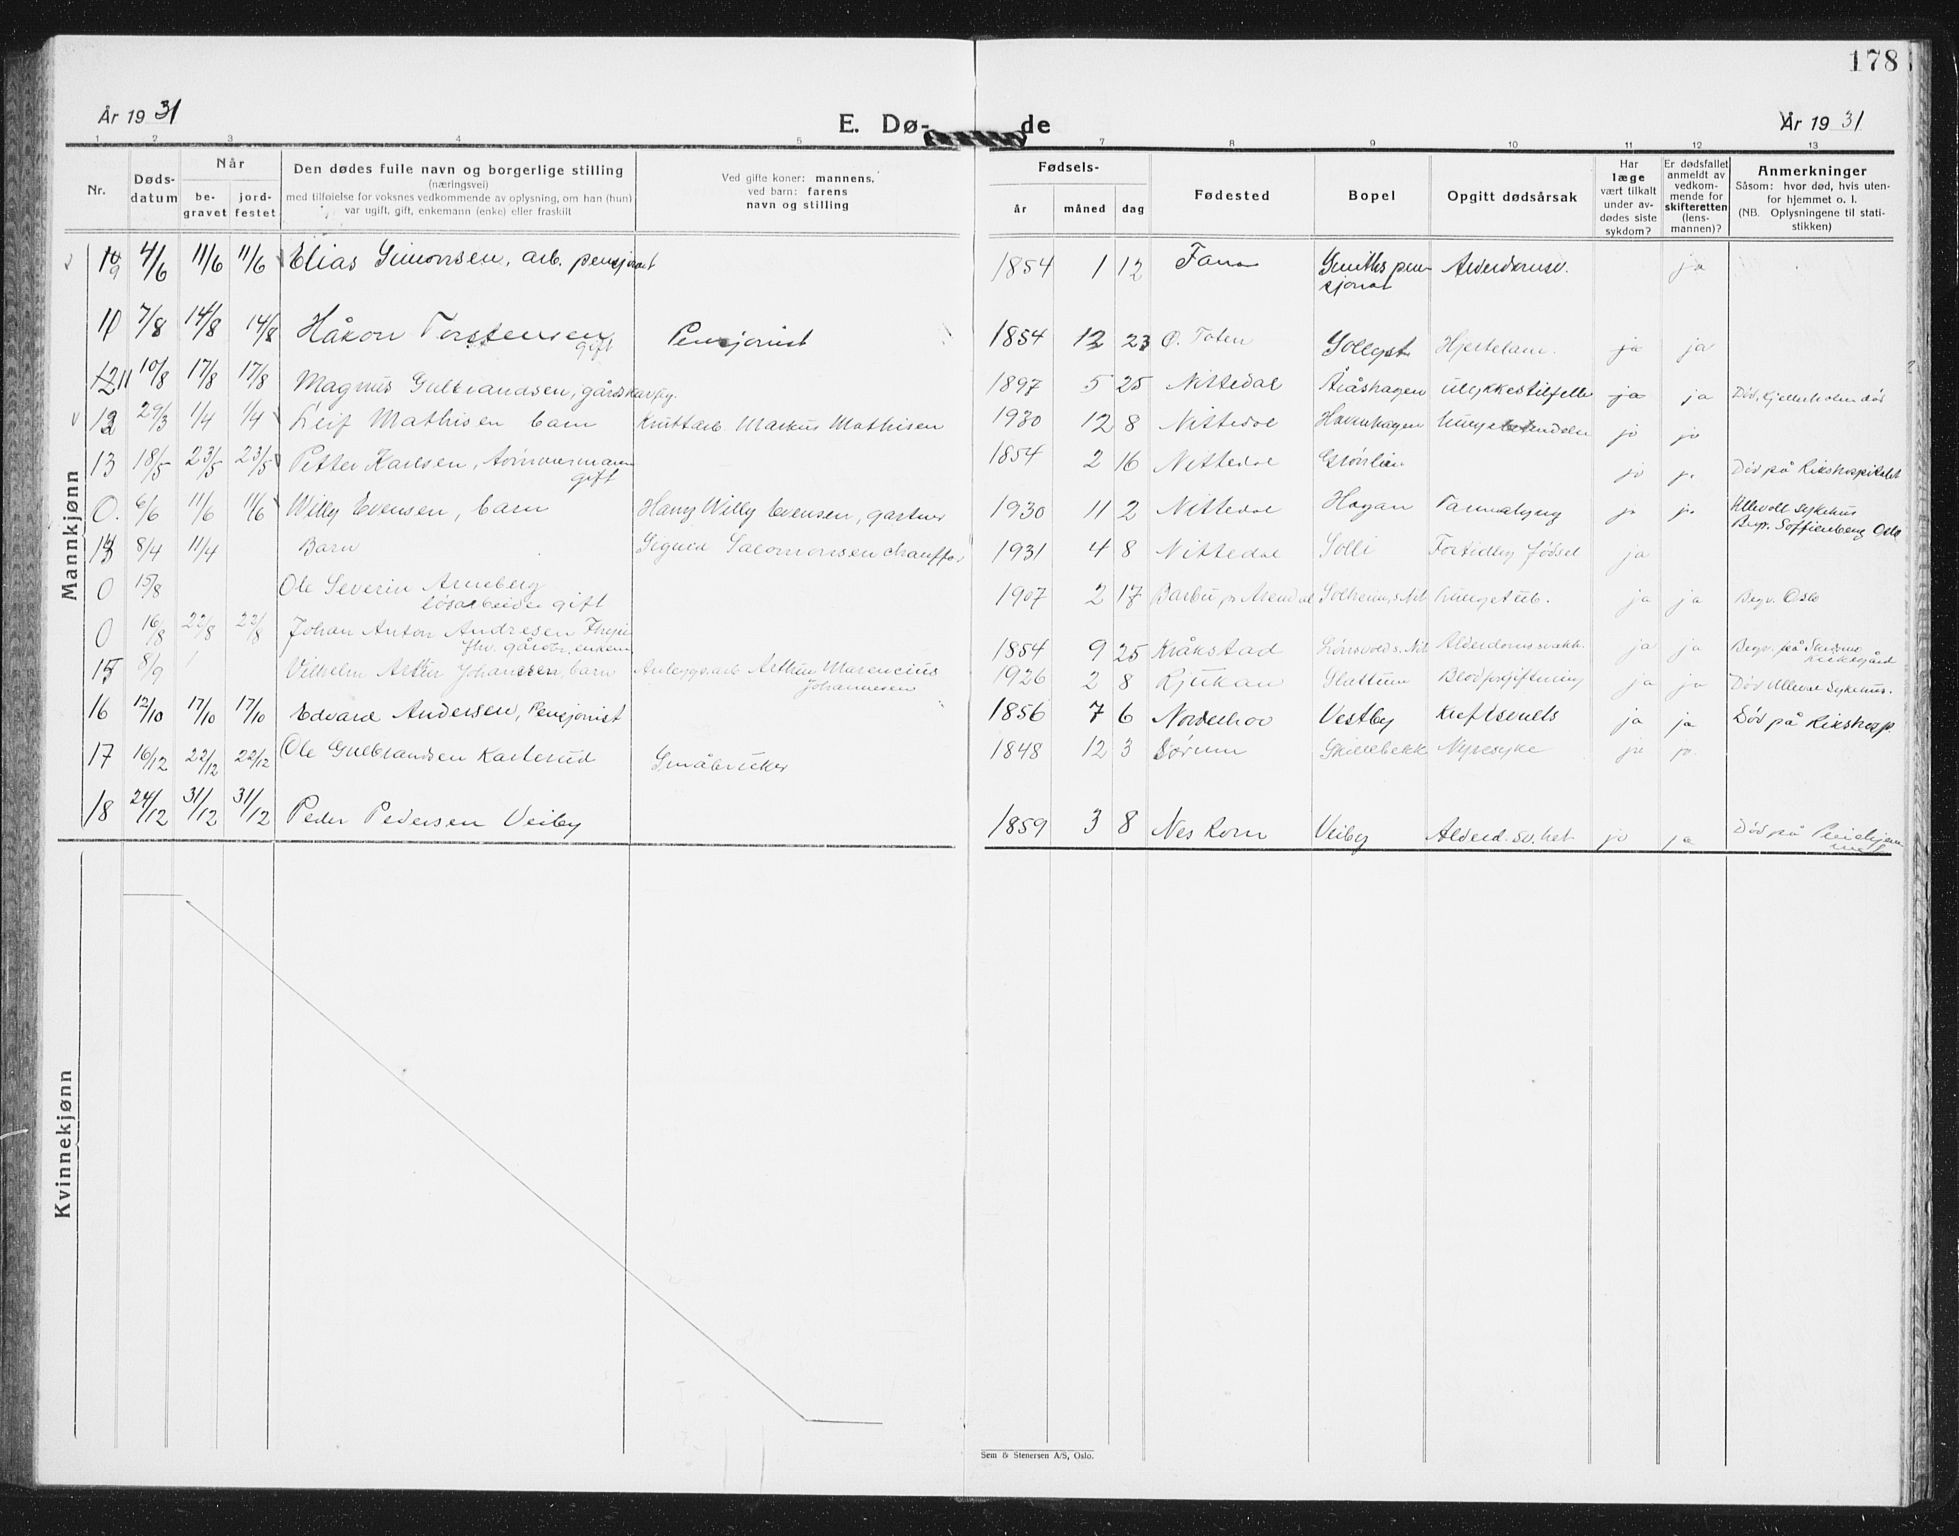 178
År 1931
E. Dø-
de
År 1931
1 2 3 4 5 7 8 9 10 11 12 13
Nr.
Døds-
datum
Når
be-
gravet
jord-
festet
Den dødes fulle navn og borgerlige stilling
(næringsvei)
med tilføielse for voksnes vedkommende av oplysning, om han (hun)
var ugift, gift, enkemann (enke) eller fraskilt
Ved gifte koner: mannens,
ved barn: farens
navn og stilling
Fødsels-
år måned dag
Fødested
Bopel
Opgitt dødsårsak
Har
læge
vært tilkalt
under av-
dødes siste
sykdom?
Er dødsfallet
anmeldt av
vedkom-
mende for
skifteretten
(lens-
mannen)?
Anmerkninger
Såsom: hvor død, hvis uten-
for hjemmet o. l.
(NB. Oplysningene til stati-
stikken)
Mannkjønn
9 4/6 11/6 11/6 Elias Simonsen, arb. pensjonat 1854 1 12 Fana Smiths pen-
sjonat Alderdomsv. ja
10 7/8 14/8 14/8 Håkon Torstensen
gift Pensjonist 1854 12 23 Ø. Toten Sollyst Hjertelam. ja ja
11 10/8 17/8 17/8 Magnus Gulbrandsen, gårdskar 1897 5 25 Nittedal Åråshagen Ulykkestilfelle ja ja
12 29/3 1/4 1/4 Leif Mathisen barn Markus Mathisen 1930 12 8 Nittedal Havnhagen ja ja
13 18/5 23/5 23/5 Petter Karlsen, tømmermann
gift 1854 2 16 Nittedal Grønlien ja ja Død på Rikshospitalet
0. 6/6 11/6 11/6 Willy Evensen, barn Harry Willy Evensen, gartner 1930 11 2 Nittedal Hagan ja ja Ullevoll Sykehus
Begr. Soffienberg Oslo
14 8/4 11/4 Barn Sigurd Salomonsen chauffør 1931 4 8 Nittedal Solli Fortidlig fødsel ja
0 15/8 Ole Severin Arneberg
løsarbeider gift 1907 2 17 Barbu pr Arendal Solheim, s. Nit Lungetub. ja ja Begr. Oslo
0 16/8 22/8 22/8 Johan Anton Andresen
fhv. gårdbr., enkem 1854 9 25 Kråkstad Alderdomssvakh. ja ja Begr. på Skedsmo
kirkegård
15 8/9 Vilhelm Artur Johansen, barn Anleggsarb Arthur Marencius
Johannesen 1926 2 8 Rjukan Slattum Blodforgiftning ja ja Død Ulleval Sykehus.
16 12/10 17/10 17/10 Edvard Andersen, Pensjonist 1856 7 6 Norderhov Vestby Kreftsvulst ja ja Død på Rikshosp
17 16/12 22/12 22/12 Ole Gulbrandsen Karterud Småbruker 1848 12 3 Sørum Skillebekk Nyresyke ja ja
18 24/12 31/12 31/12 Peder Pedersen Veiby 1859 3 8 Nes Rom Veiby Alderd.sv.het ja ja Død på Pleiehjem
Kvinnekjønn
Sem & Stenersen A/S, Oslo.